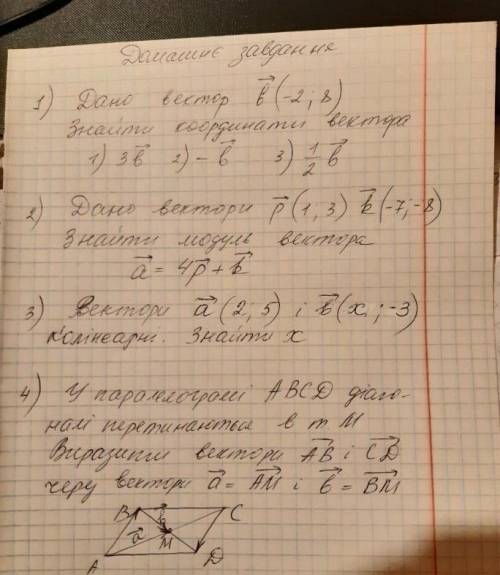 Домашнє завдання
1) Дано вектор b⃗ (-2; 8)
Знайти координати вектора
1) 3b⃗ 2) -b⃗ 3) 1/2 b⃗
2) Дано вектори p⃗ (1, 3) k⃗ (-7; -8)
Знайти модуль вектора
a⃗ = 4p⃗ + k⃗
3) Вектори a⃗ (2; 5) і b⃗ (x; -3)
колінеарні. Знайти x
4) У паралелограмі ABCD діаго-
налі перетинаються в т. M
Виразити вектори AB⃗ і CD⃗
через вектори a⃗ = AM⃗ і b⃗ = BM⃗
B b⃗ C
a⃗ M
A D